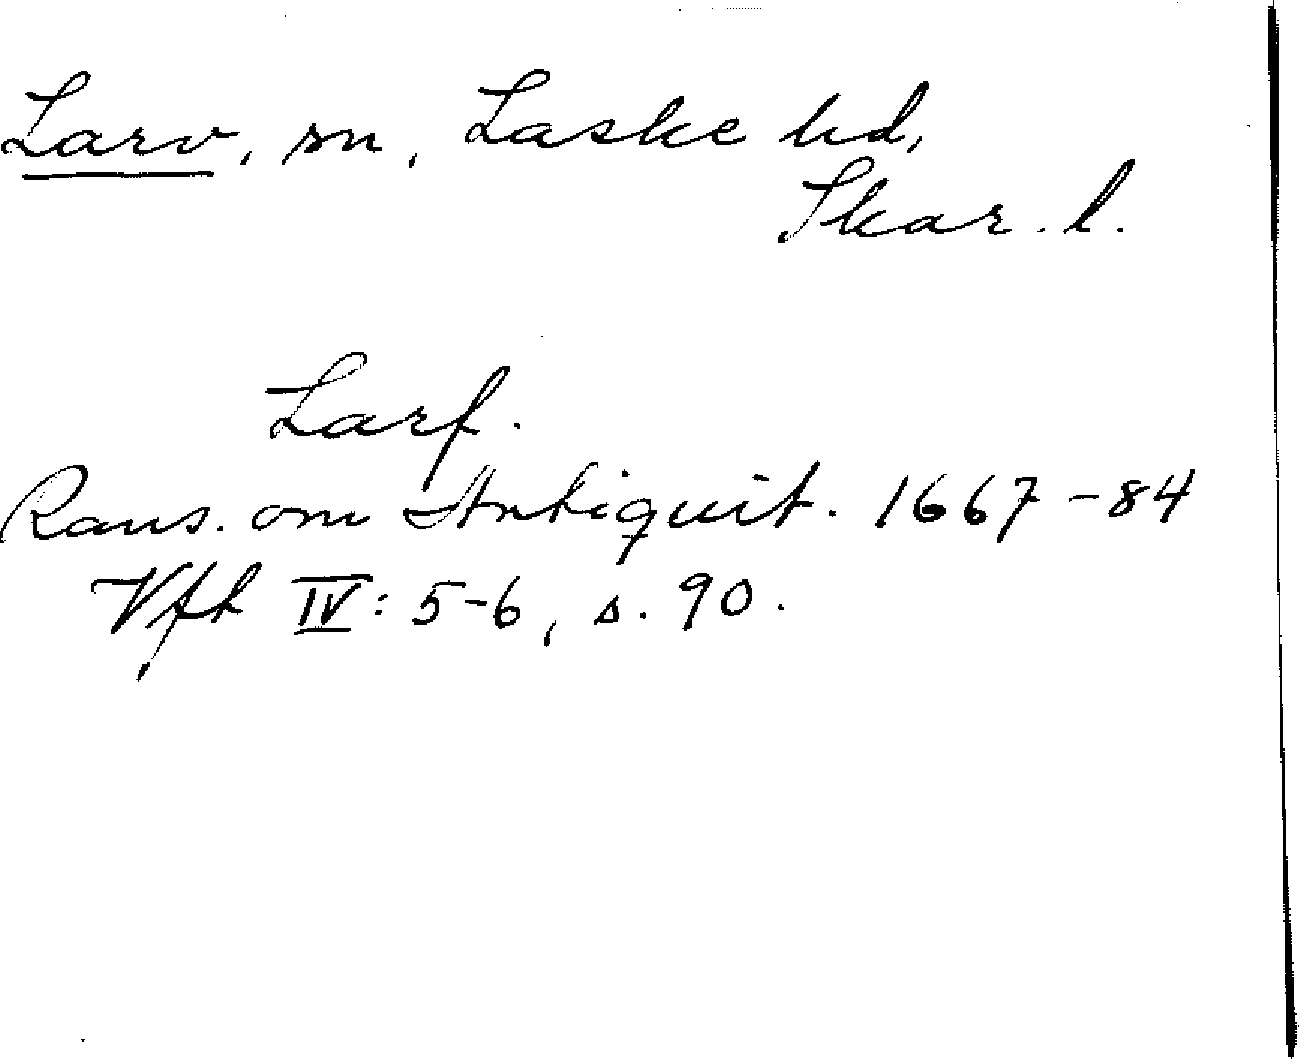 Larv, sn, Laske hd,
Skar. l.
Larf.
Rans. om Antiquit. 1667-84
Vfh IV: 5-6, s. 90.